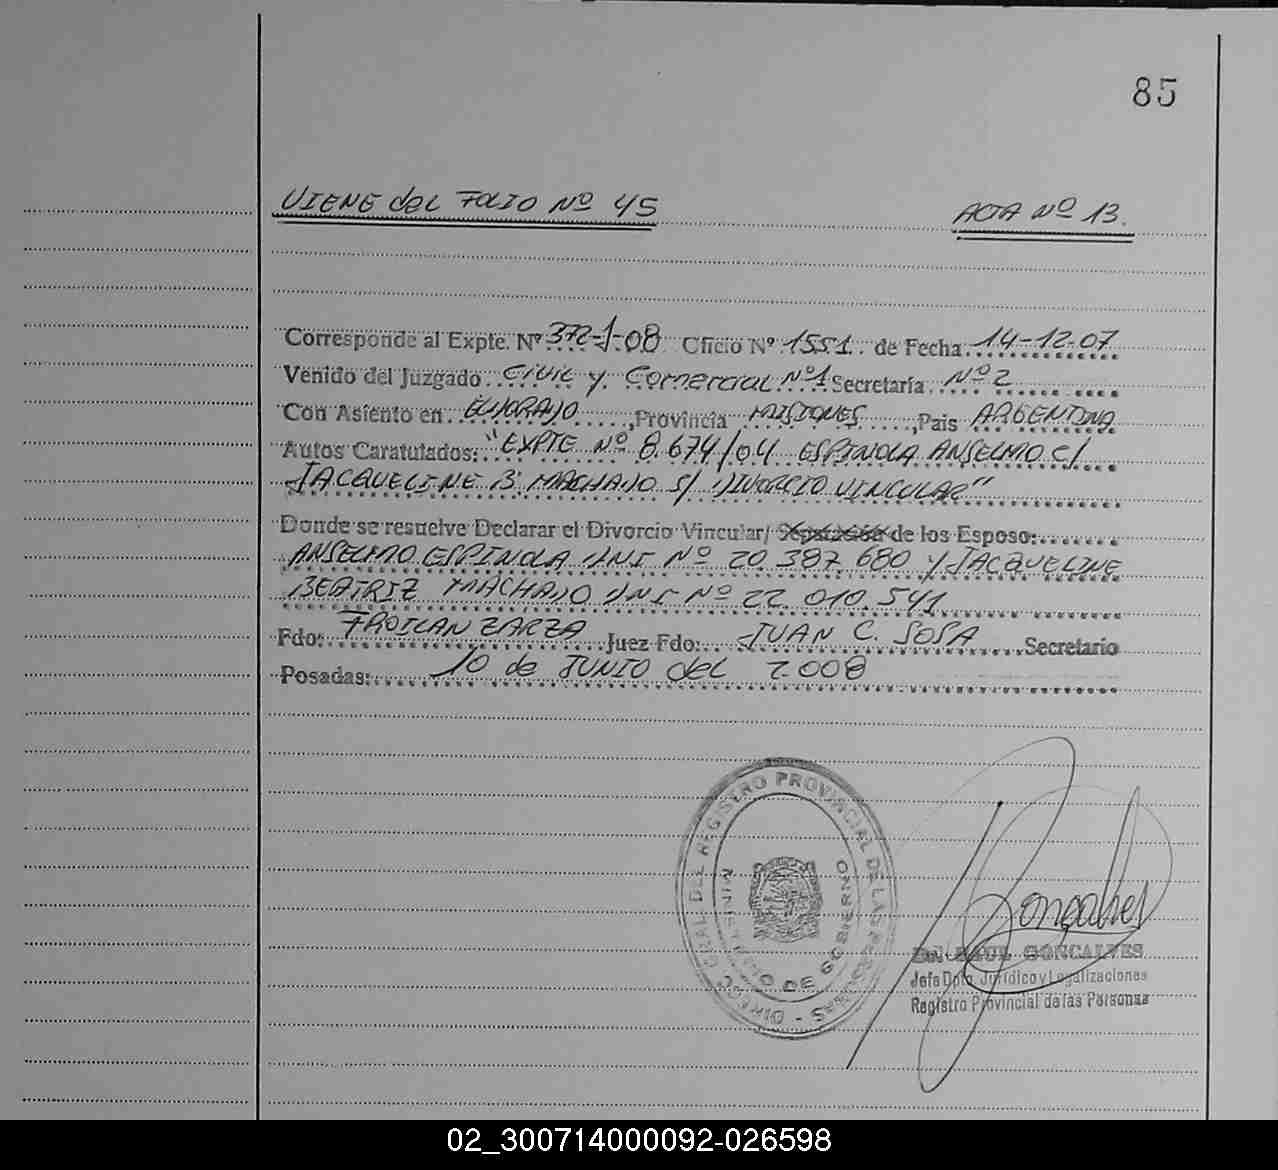 85
VIENE del FOLIO Nº 45 ACTA Nº 13.
Corresponde al Expte. Nº 372-J-08 Oficio Nº 1551. de Fecha 14-12-07
Venido del Juzgado CIVIL y Comercial Nº1 Secretaría Nº 2
Con Asiento en ELDORADO, Provincia MISIONES, Pais ARGENTINA
Autos Caratulados: "EXPTE Nº 8.674/04 ESPINOLA ANSELMO C/
JACQUELINE B MACHADO S/ DIVORCIO VINCULAR"
Donde se resuelve Declarar el Divorcio Vincular/ Separación de los Esposo:
ANSELMO ESPINOLA DNI Nº 20.387.680 y JACQUELINE
BEATRIZ MACHADO DNI Nº 22.010.541
Fdo: FROILAN ZARZA Juez Fdo: JUAN C. SOSA Secretario
Posadas: 10 de JUNIO del 2008
DIREC. GRAL. DEL REGISTRO PROVINCIAL DE LAS PERSONAS -
MINISTERIO DE GOBIERNO
Gonçalves
RAUL GONCALVES
Jefe Dpto. Jurídico y Legalizaciones
Registro Provincial de las Personas
02_300714000092-026598